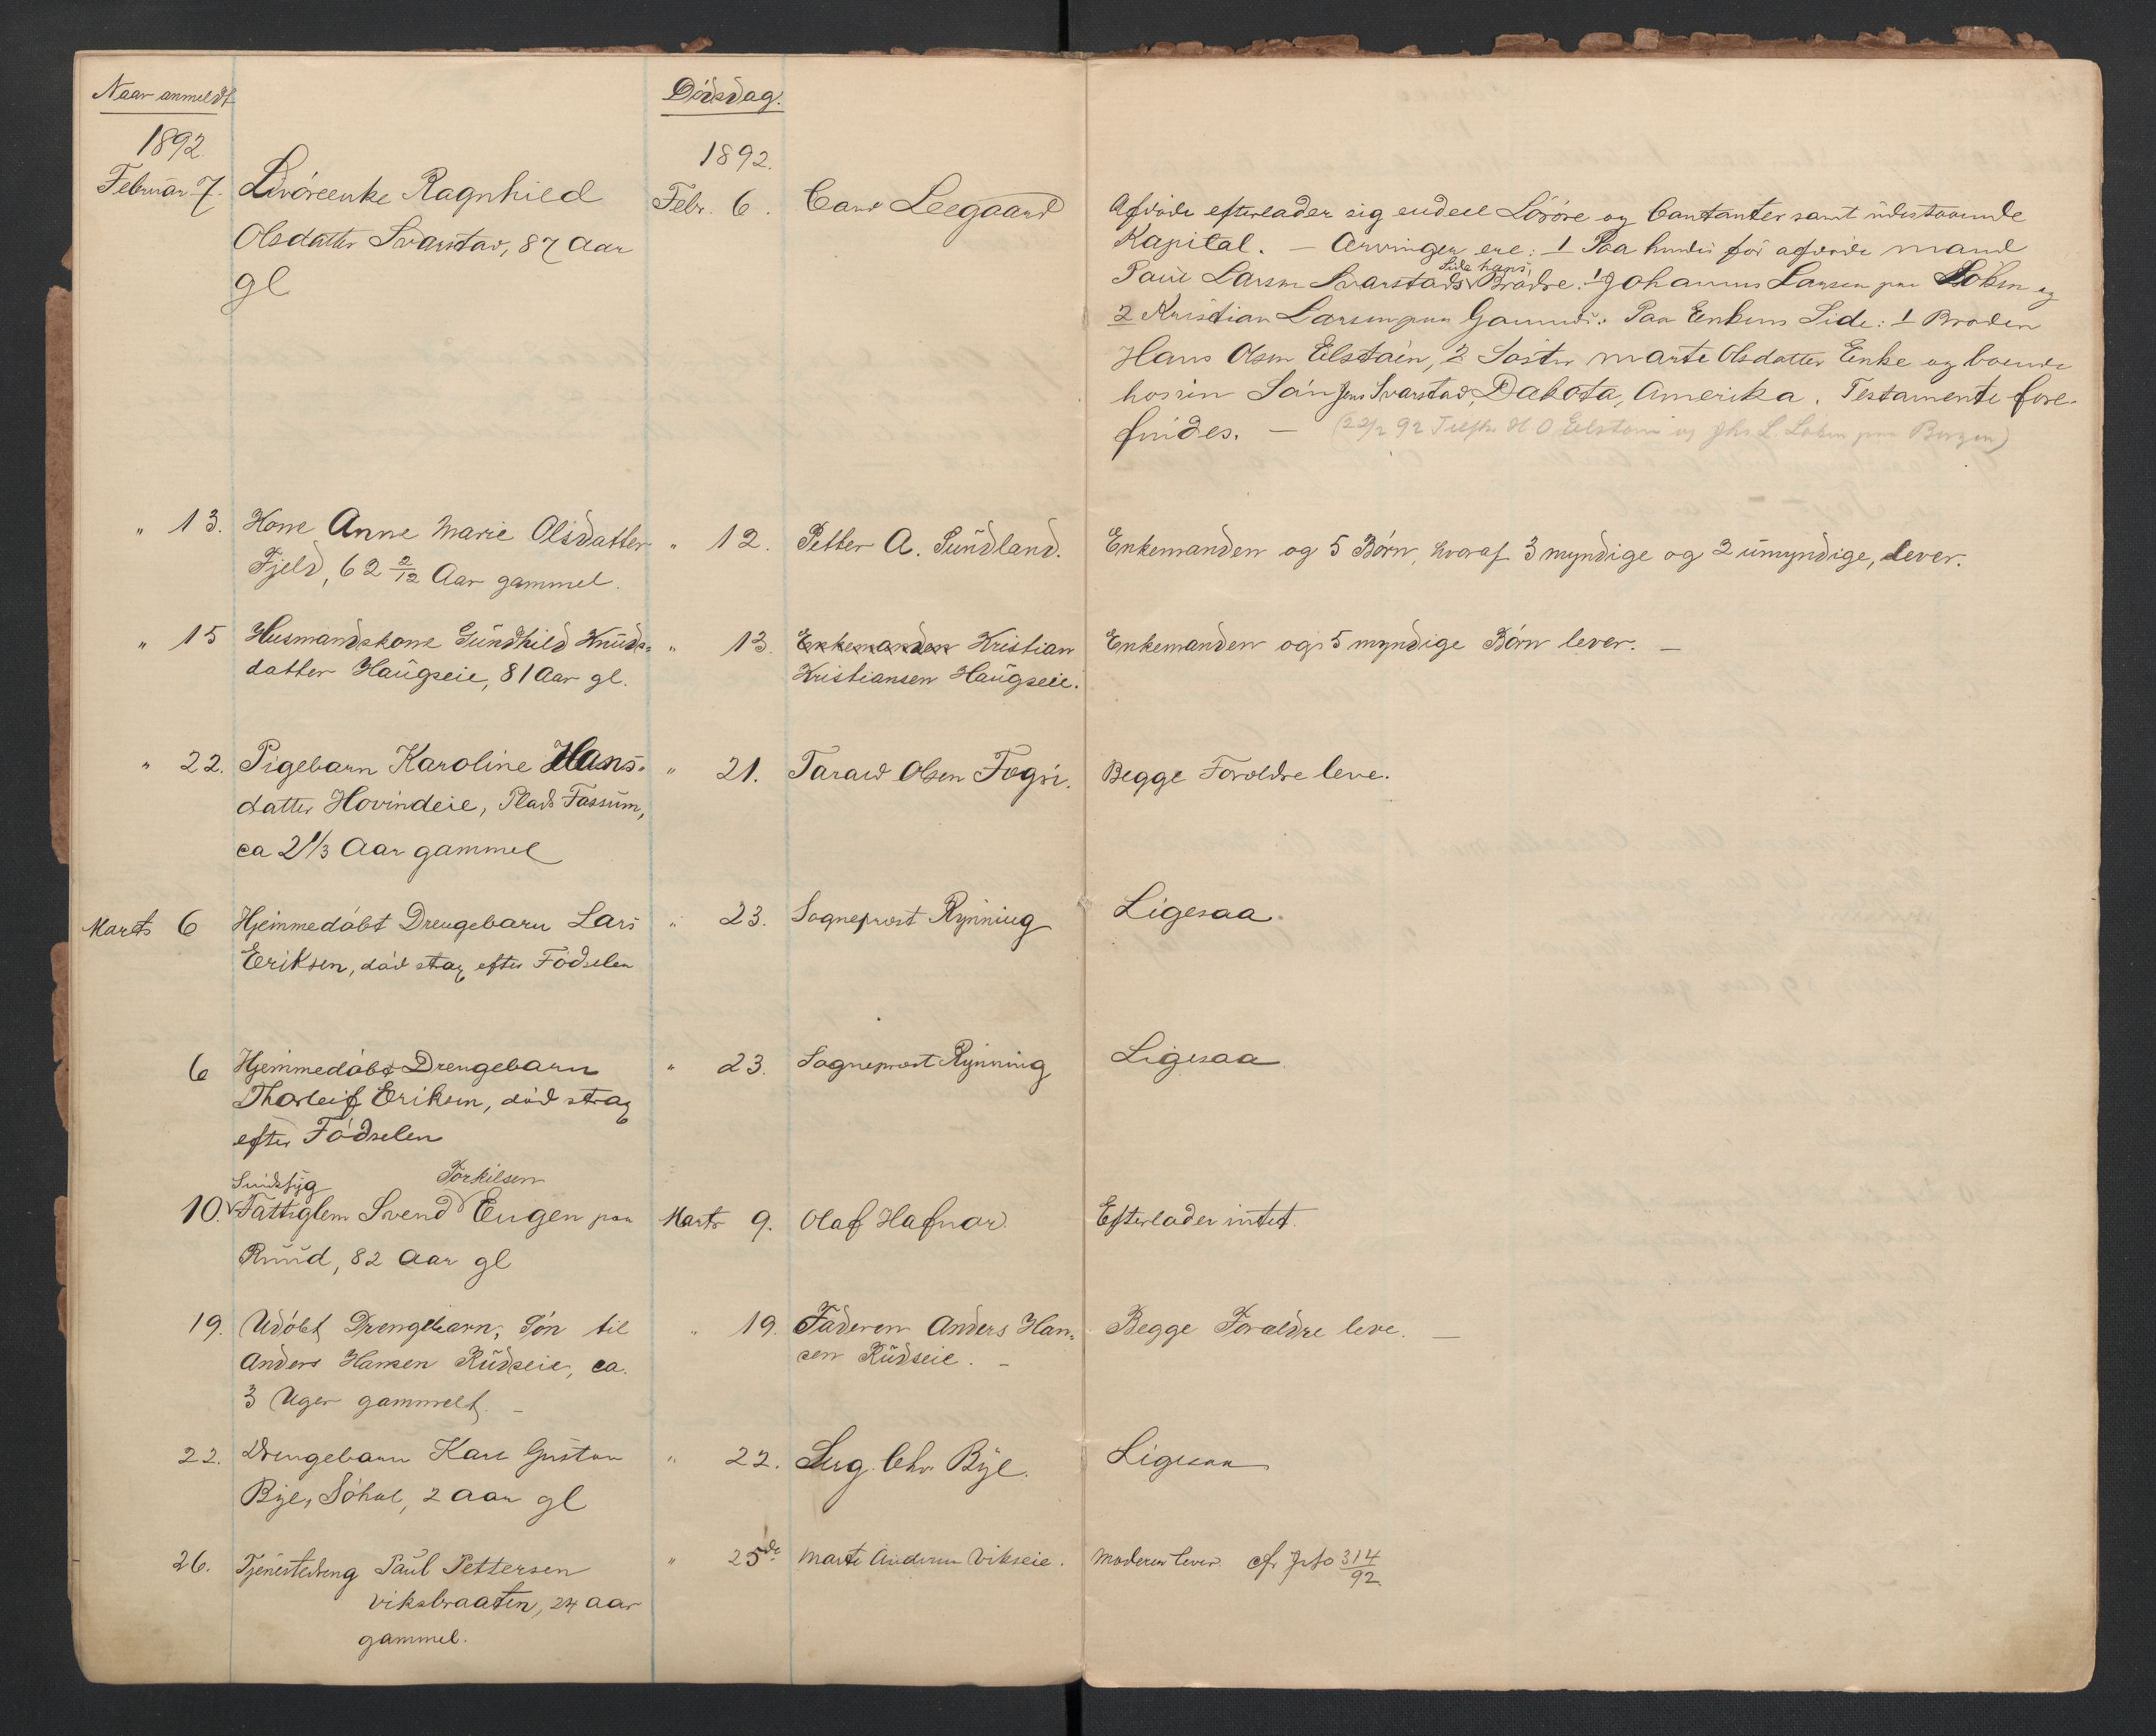 Naar anmeldt
Dødsdag.
1892.
1892.
Februar 7.
Livøreenke Ragnhild
Olsdatter Svarstad, 87 Aar
gl
Febr. 6.
Carl Leegaard
Afdøde efterlader sig endeel Løsøre og Contanter samt udestaaende
Kapital. — Arvinger ere: 1 Paa hendes før afdøde Mand
Paul Larsen Svarstads Side hans Brødre: 1 Johannes Larsen paa Løbin og
2 Kristian Larsen paa Paa Enkens Side: 1 Broder
Hans Olsen Elstøin, 2 Søster Marte Olsdatter Enke og boende
hos sin Søn Jens Svarstad, Dakota, Amerika. Testamente fore-
findes. — (22/2 92 H O Elstøin og Jhs L. Løbin paa)
" 13.
Kone Anne Marie Olsdatter
Fjeld, 62 2/12 Aar gammel.
" 12.
Petter A. Sundland.
Enkemanden og 5 Børn, hvoraf 3 myndige og 2 umyndige, lever.
" 15
Husmandskone Gundhild Knuds-
datter Haugseie, 81 Aar gl.
" 13.
Enkemanden Kristian
Kristiansen Haugseie.
Enkemanden og 5 myndige Børn lever. —
" 22.
Pigebarn Karoline Hans-
datter Hovindeie, Plads Fossum,
ca 2 1/3 Aar gammel
" 21.
Tarald Olsen Fogsi.
Begge Forældre leve.
Marts 6
Hjemmedøbt Drengebarn Lars
Eriksen, død strax efter Fødselen
" 23.
Sogneprost Rynning
Ligesaa.
6
Hjemmedøbt Drengebarn
Thorleif Eriksen, død strax
efter Fødselen
" 23.
Sogneprost Rynning
Ligesaa.
Sindssyg Torkilsen
10. Fattiglem Svend Eugen paa
Ruud, 82 Aar gl
Marts 9.
Olaf Hafnor.
Efterlader intet.
19.
Udøbt Drengebarn, Søn til
Anders Hansen Rudseie, ca.
3 Uger gammelt. —
" 19.
Faderen Anders Han-
sen Rudseie. —
Begge Forældre leve. —
22.
Drengebarn Karl Gustav
Bye, Søhol, 2 Aar gl
" 22.
Lug. Chr. Bye.
Ligesaa
26.
Tjenestedreng Paul Pettersen
Viksbraaten, 24 aar
gammel.
" 25de
Marte Andersen Vikseie.
Moderen lever. cfr 314/92